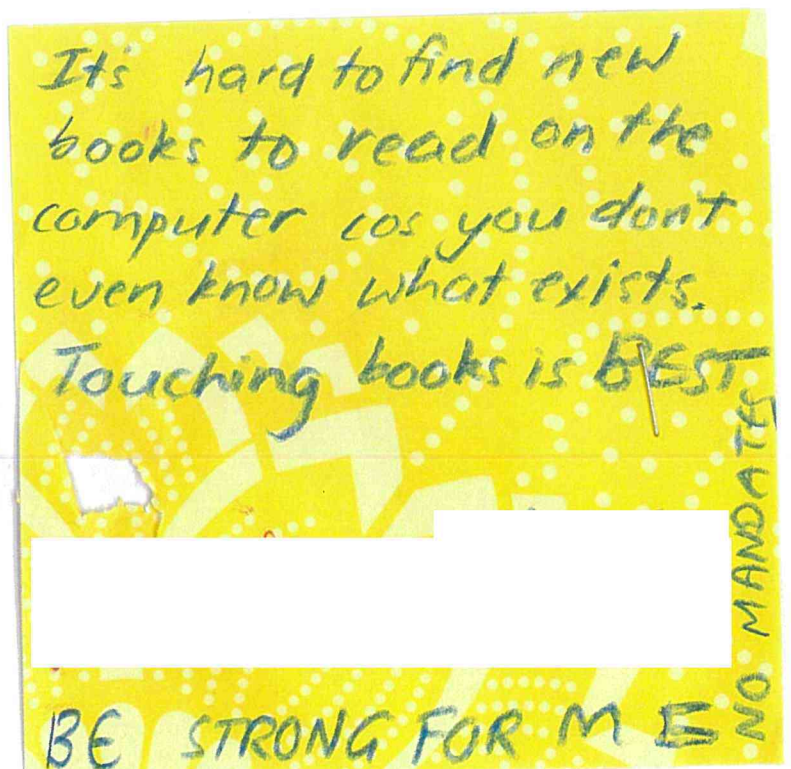 It's hard to find new
books to read on the
computer cos you don't
even know what exists.
Touching books is BEST
NO MANDATES
BE STRONG FOR ME